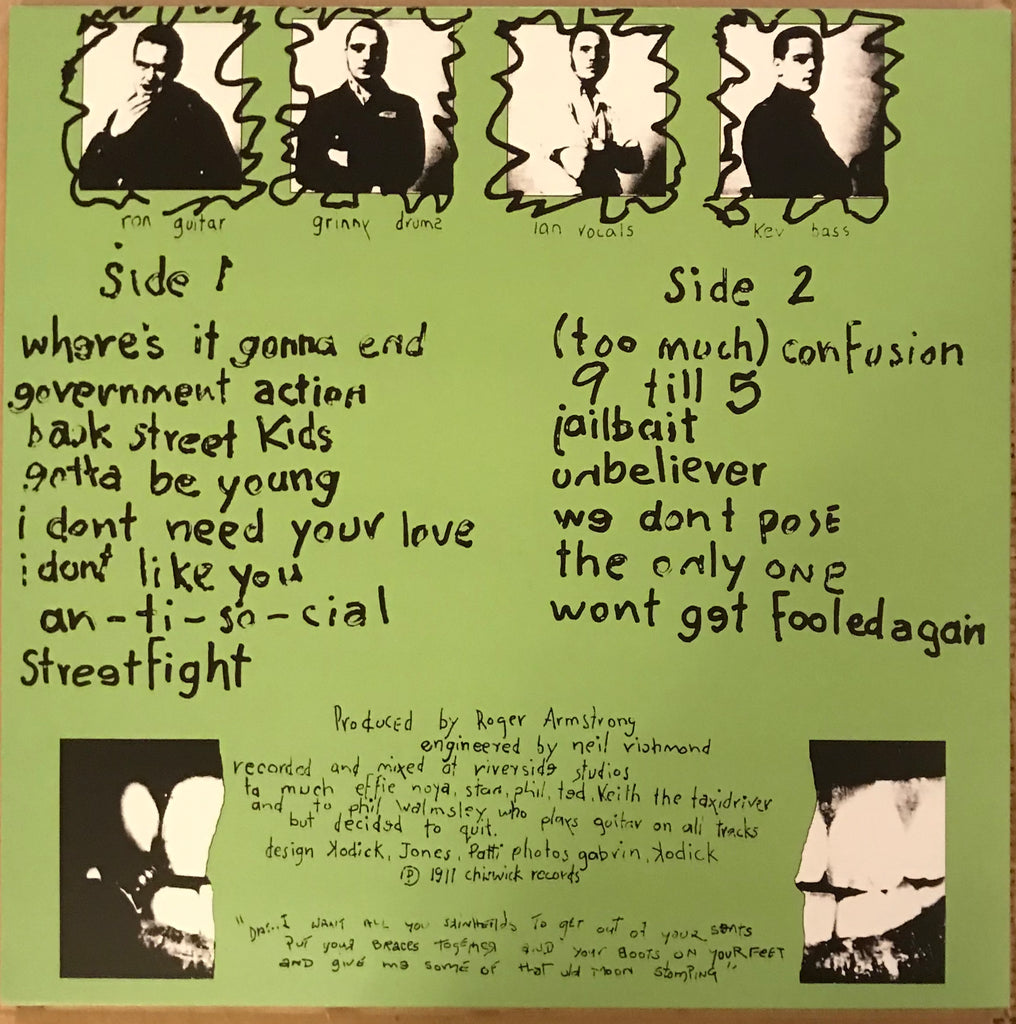 ron guitar
grinny drums
Ian vocals
Kev bass
Side 1
where's it gonna end
government action
back street kids
gotta be young
i dont need your love
i dont like you
an-ti-so-cial
Streetfight
Side 2
(too much) confusion
9 till 5
jailbait
unbeliever
we dont pose
the only one
wont get fooled again
Produced by Roger Armstrong
engineered by neil richmond
recorded and mixed at riverside studios
ta much effie noya, stan, phil, ted, Keith the taxidriver
and to phil walmsley, who plays guitar on all tracks
but decided to quit.
design Kodick, Jones, Patti photos gabrin, Kodick
Ⓟ 1977 chiswick records
I WANT ALL YOU SKINHEADS TO GET OUT OF YOUR SEATS
PUT YOUR BRACES TOGETHER AND YOUR BOOTS ON YOUR FEET
AND GIVE ME SOME OF THAT OLD MOON STOMPING"